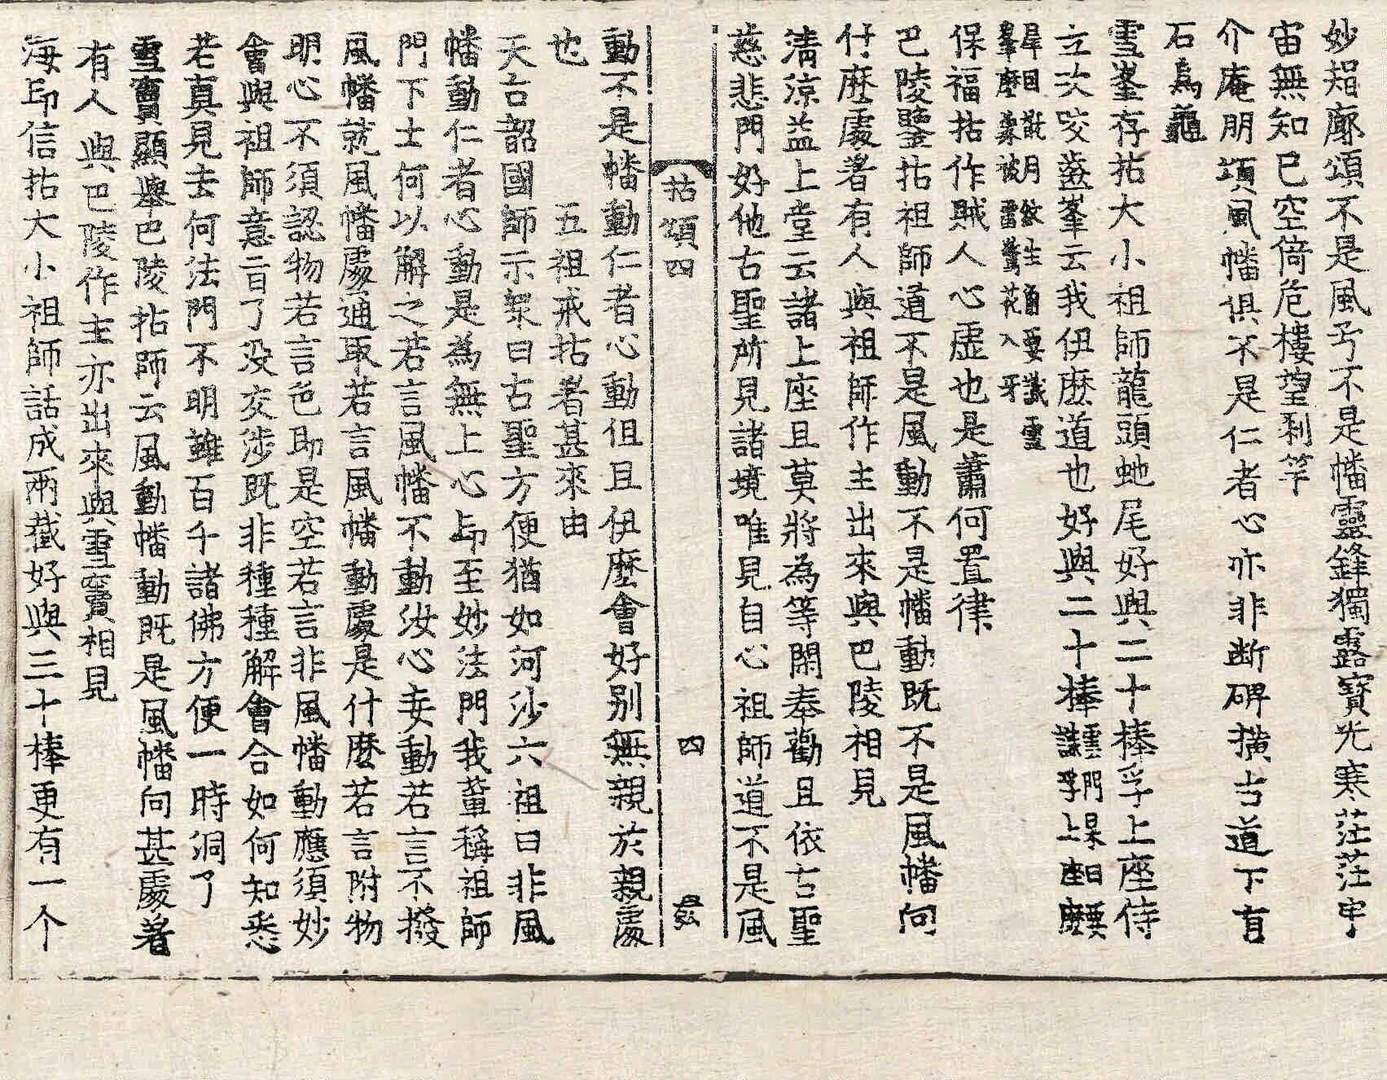 妙超廓頌不是風兮不是幡靈鋒獨露寶光寒茫茫宇
宙無知已空倚危樓望刹竿
介庵朋頌風幡俱不是仁者心亦非断碑橫古道下有
石烏龜
雪峯存拈大小祖師龍頭虵尾好與二十棒孚上座侍
立次咬齒峯云我伊麽道也好與二十棒雲門杲曰要識孚上座麽
犀因翫月紋生角要識雪峯麽象被雷驚花入牙
保福拈作賊人心虛也是蕭何置律
巴陵鑒拈祖師道不是風動不是幡動旣不是風幡向
什麽處著有人與祖師作主出來與巴陵相見
淸涼益上堂云諸上座且莫將為等閑奉勸且依古聖
慈悲門好他古聖所見諸境唯見自心祖師道不是風
拈頌四 四
動不是幡動仁者心動但且伊麽會好别無親於親處
也 五祖戒拈著甚來由
天台韶國師示衆曰古聖方便猶如河沙六祖曰非風
幡動仁者心動是為無上心印至妙法門我輩稱祖師
門下士何以解之若言風幡不動汝心妄動若言不撥
風幡就風幡處通取若言風幡動處是什麽若言附物
明心不須認物若言色即是空若言非風幡動應須妙
會與祖師意旨了没交涉旣非種種解會合如何知悉
若真見去何法門不明雖百千諸佛方便一時洞了
雪竇顯擧巴陵拈師云風動幡動旣是風幡向甚處著
有人與巴陵作主亦出來與雪竇相見
海印信拈大小祖師話成兩截好與三十棒更有一个